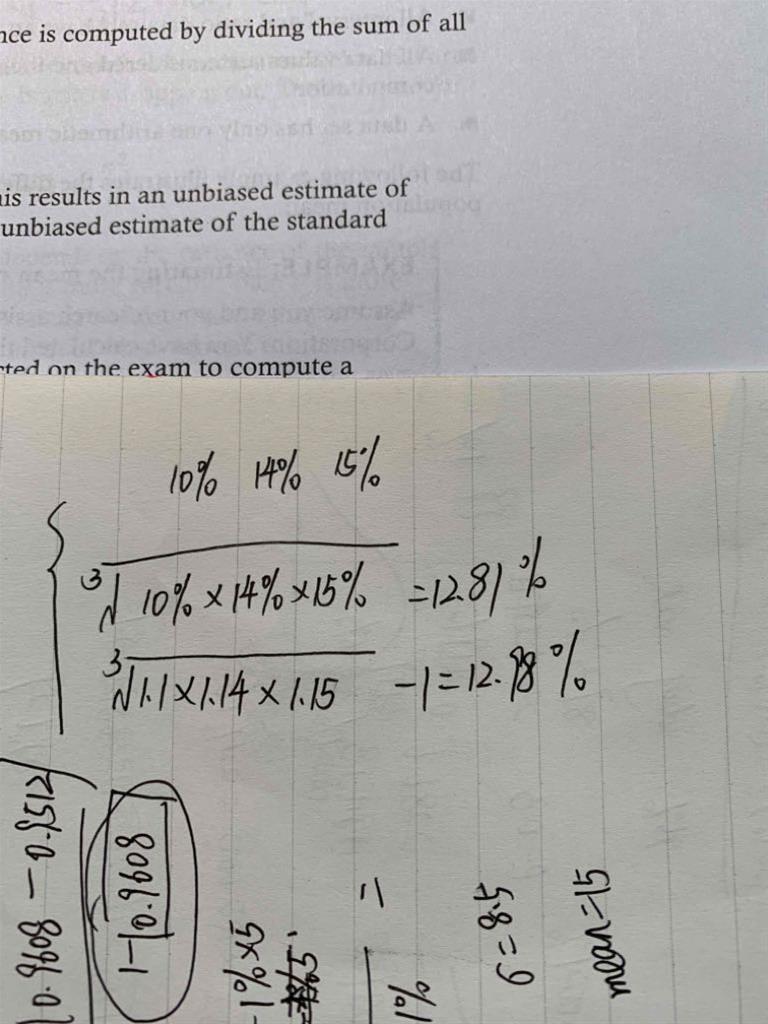 nce is computed by dividing the sum of all
his results in an unbiased estimate of
unbiased estimate of the standard
cted on the exam to compute a
10% 14% 15%
3√10%×14%×15% =12.81%
3√1.1×1.14×1.15 -1=12.98%
0.9608 - 0.9512
1-0.9608
-1%×5
=
%1
6=8.5
mean=15